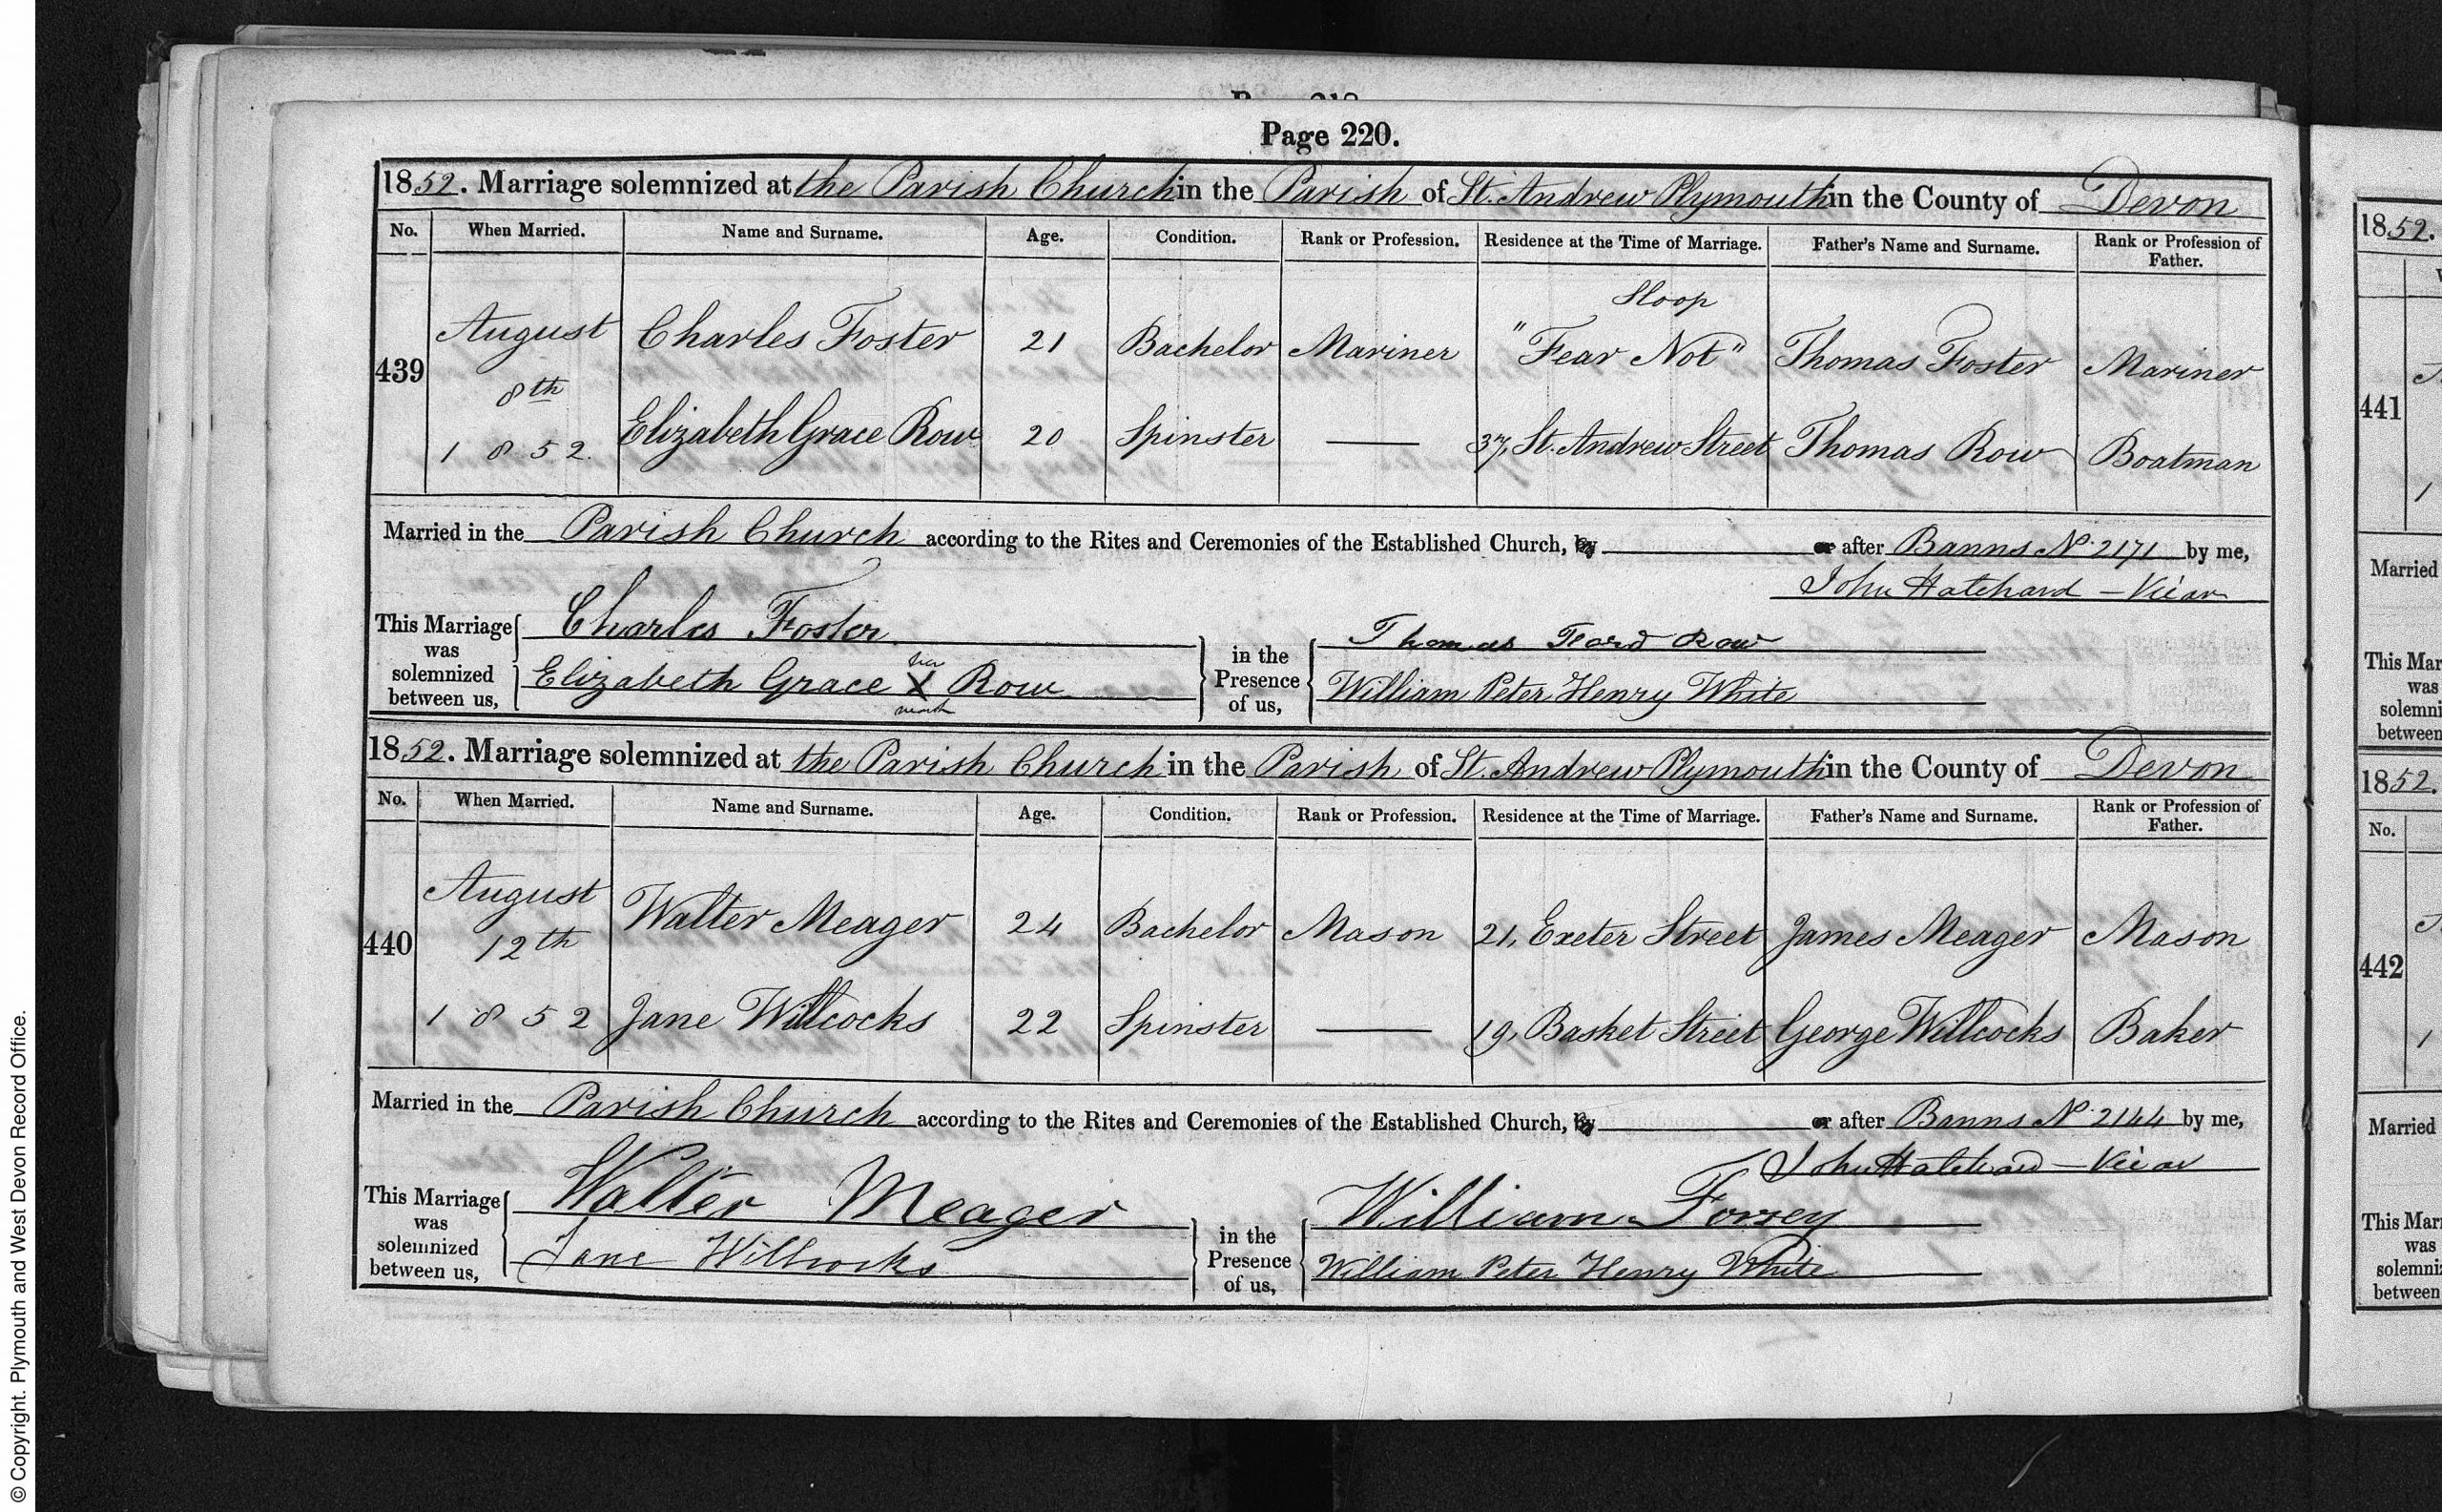 Page 218
Page 220.
1852. Marriage solemnized at the Parish Church in the Parish of St. Andrew Plymouth in the County of Devon
No. When Married. Name and Surname. Age. Condition. Rank or Profession. Residence at the Time of Marriage. Father's Name and Surname. Rank or Profession of Father.
Sloop
439 August 8th 1852. Charles Foster 21 Bachelor Mariner "Fear Not" Thomas Foster Mariner
Elizabeth Grace Row 20 Spinster — 37, St. Andrew Street Thomas Row Boatman
Married in the Parish Church according to the Rites and Ceremonies of the Established Church, by or after Banns No. 2171 by me,
John Hatchard — Vicar
This Marriage was solemnized between us, Charles Foster in the Presence of us, Thomas Ford Row
Elizabeth Grace her X mark Row William Peter Henry White
1852. Marriage solemnized at the Parish Church in the Parish of St. Andrew Plymouth in the County of Devon
No. When Married. Name and Surname. Age. Condition. Rank or Profession. Residence at the Time of Marriage. Father's Name and Surname. Rank or Profession of Father.
440 August 12th 1852 Walter Meager 24 Bachelor Mason 21, Exeter Street James Meager Mason
Jane Willcocks 22 Spinster — 19, Basket Street George Willcocks Baker
Married in the Parish Church according to the Rites and Ceremonies of the Established Church, by or after Banns No. 2144 by me,
John Hatchard — Vicar
This Marriage was solemnized between us, Walter Meager in the Presence of us, William Forsey
Jane Willcocks William Peter Henry White
1852.
441
1
Married
This Mar
was
solemni
between
1852.
No.
442
1
Married
This Mar
was
solemniz
between
© Copyright. Plymouth and West Devon Record Office.